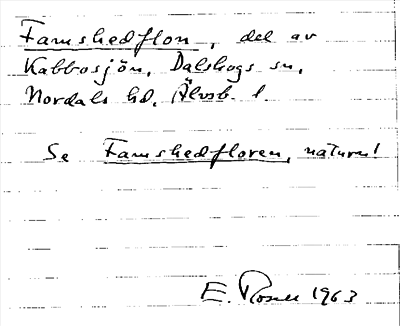 Famshedflon, del av
Kabbosjön, Dalskogs sn,
Nordals hd, Älvsb. l.
Se Famshedfloren, naturn!
E. Rosell 1963